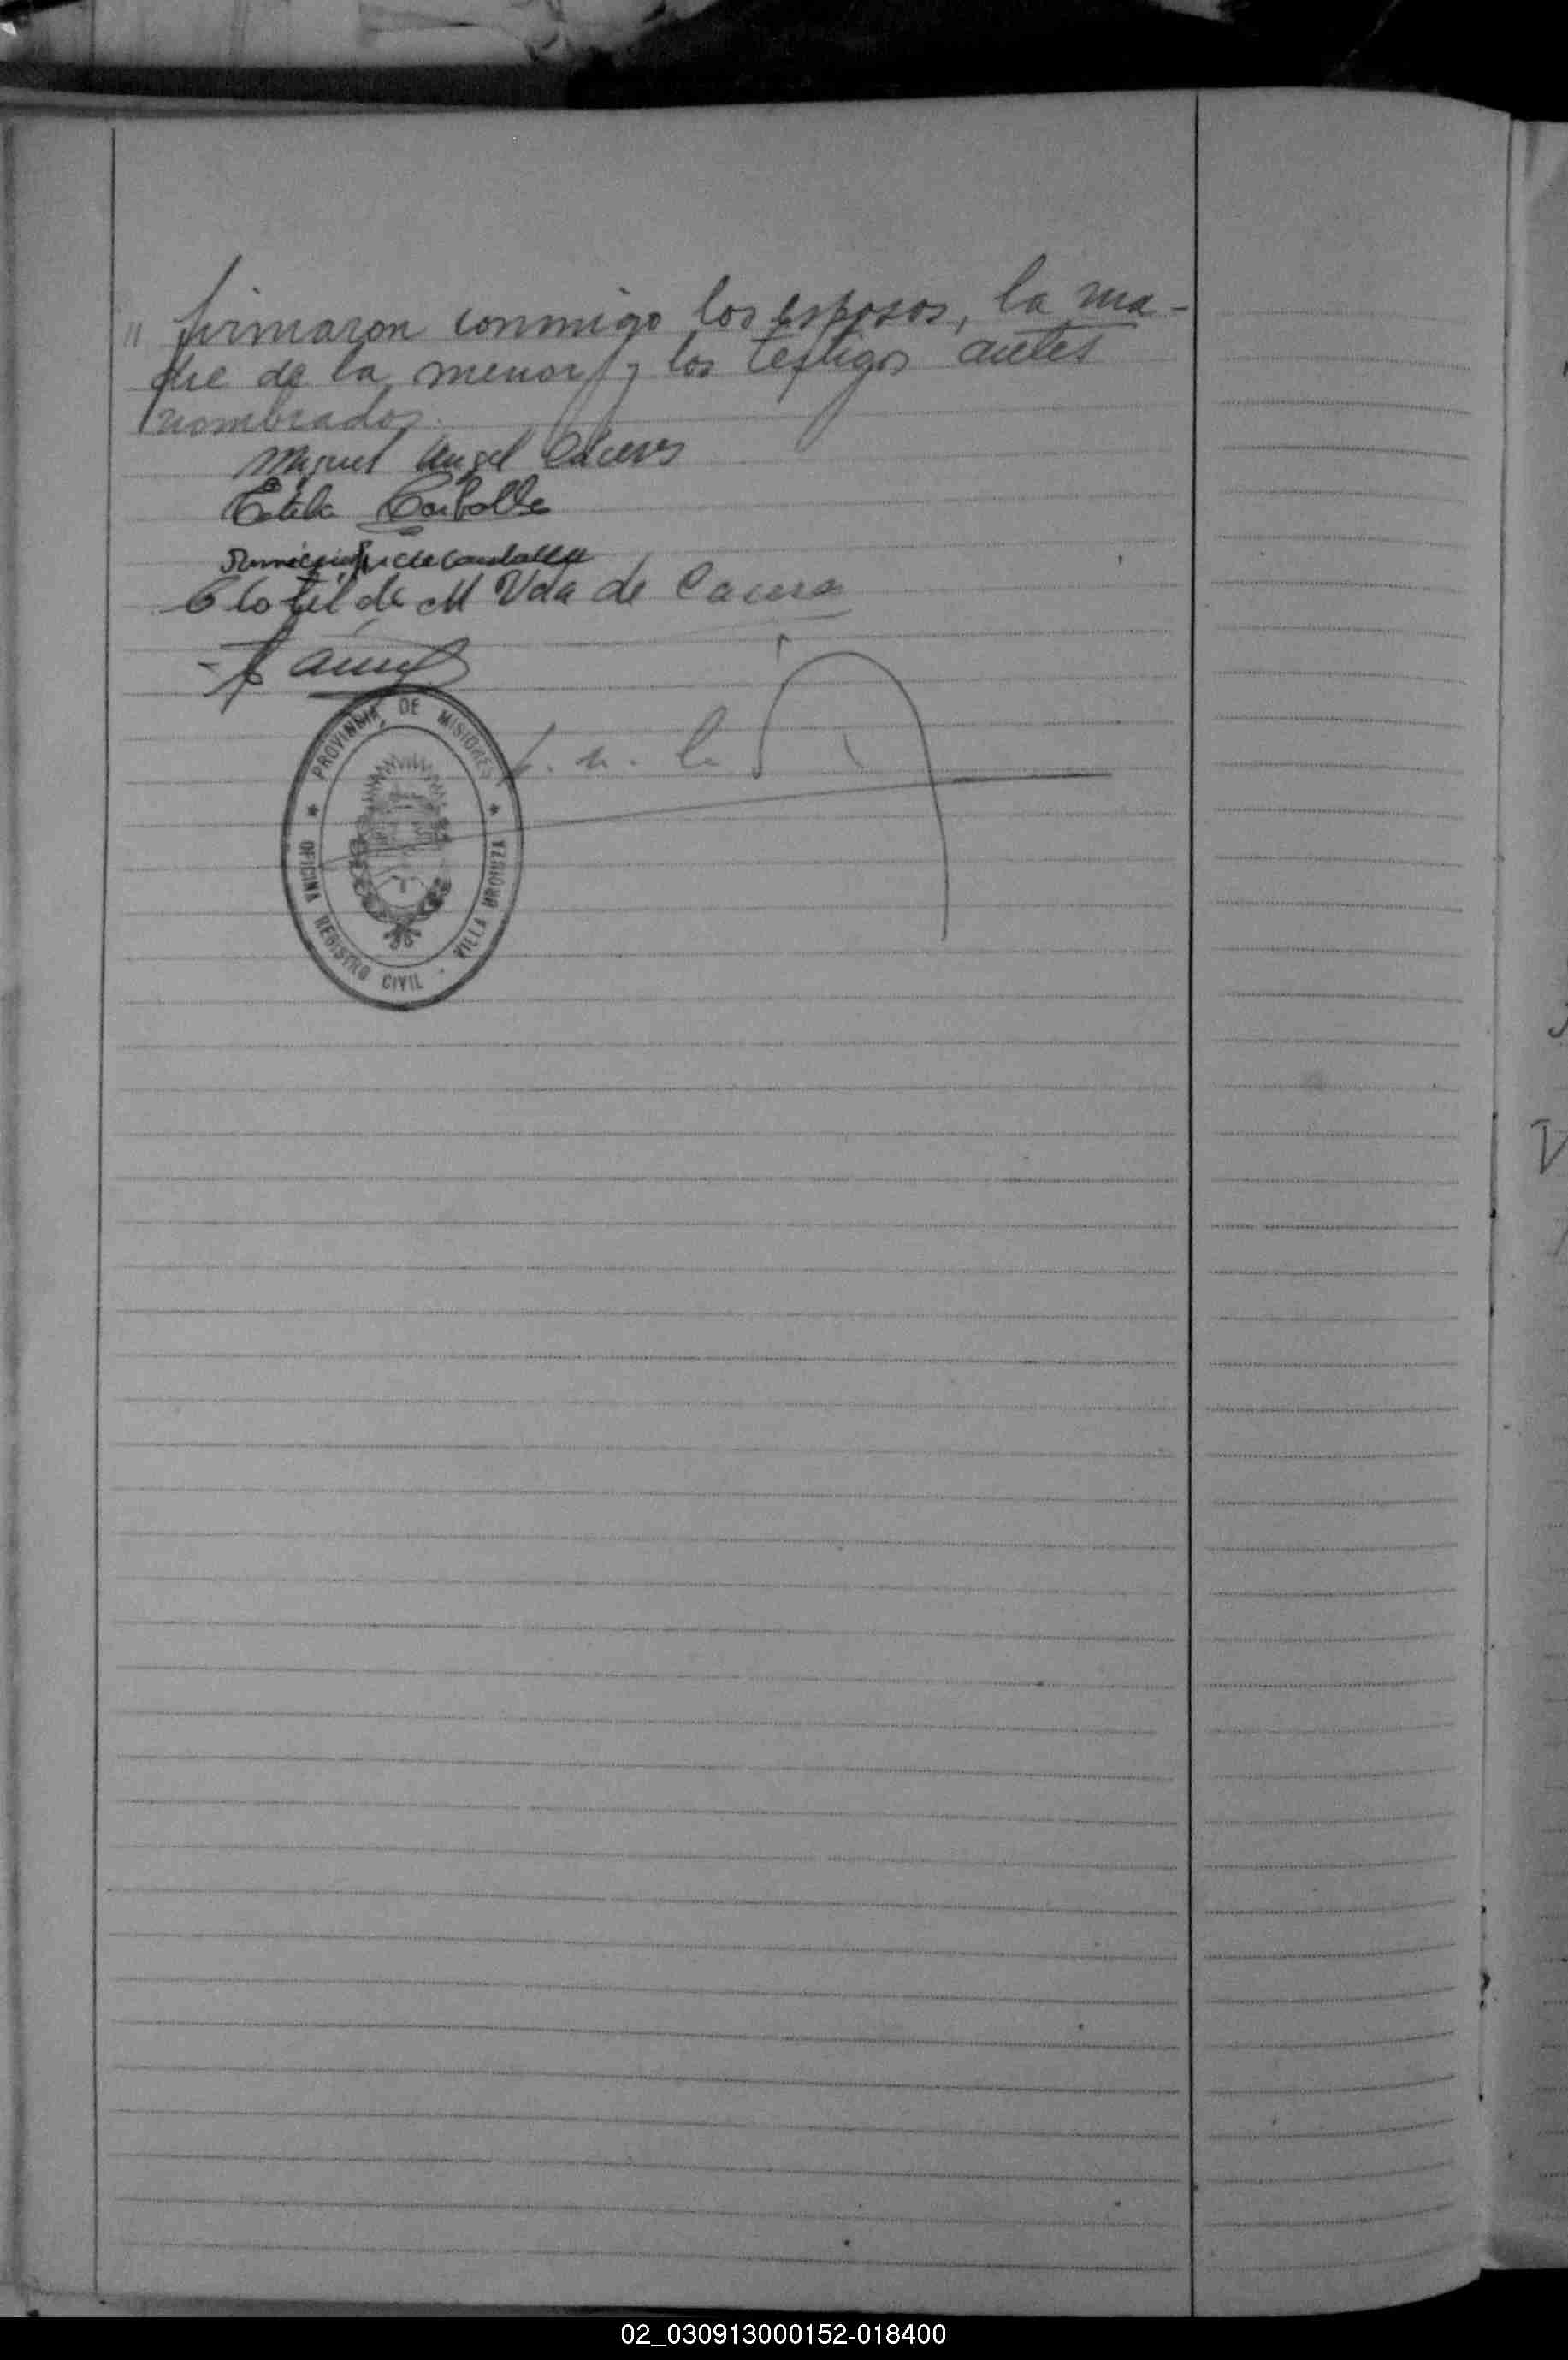 " firmaron conmigo los esposos, la ma-
dre de la menor y los testigos antes
nombrados.
Miguel Angel Cáceres
Estela Carballo
de Carballo
Clotilde M Vda de Cacere
PROVINCIA DE MISIONES
OFICINA REGISTRO CIVIL - VILLA URQUIZA
02_030913000152-018400